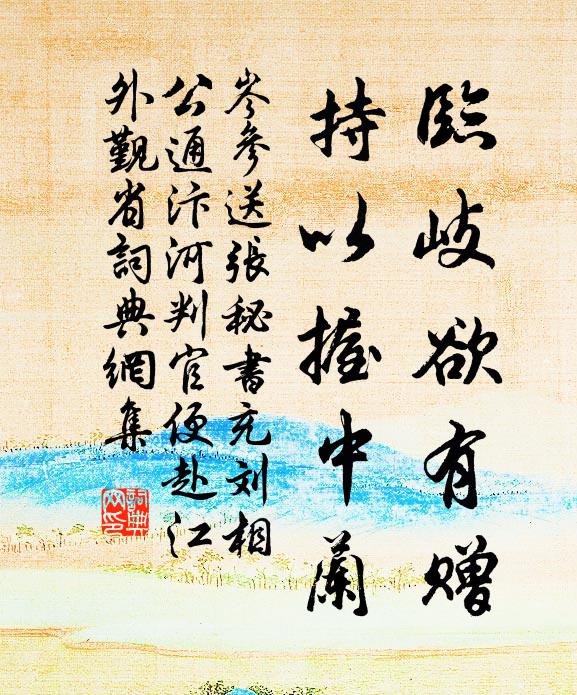 臨岐欲有贈
持以握中蘭
岑參送張秘書充刘相
公通汴河判官便赴江
外觐省詞典網集
詞典